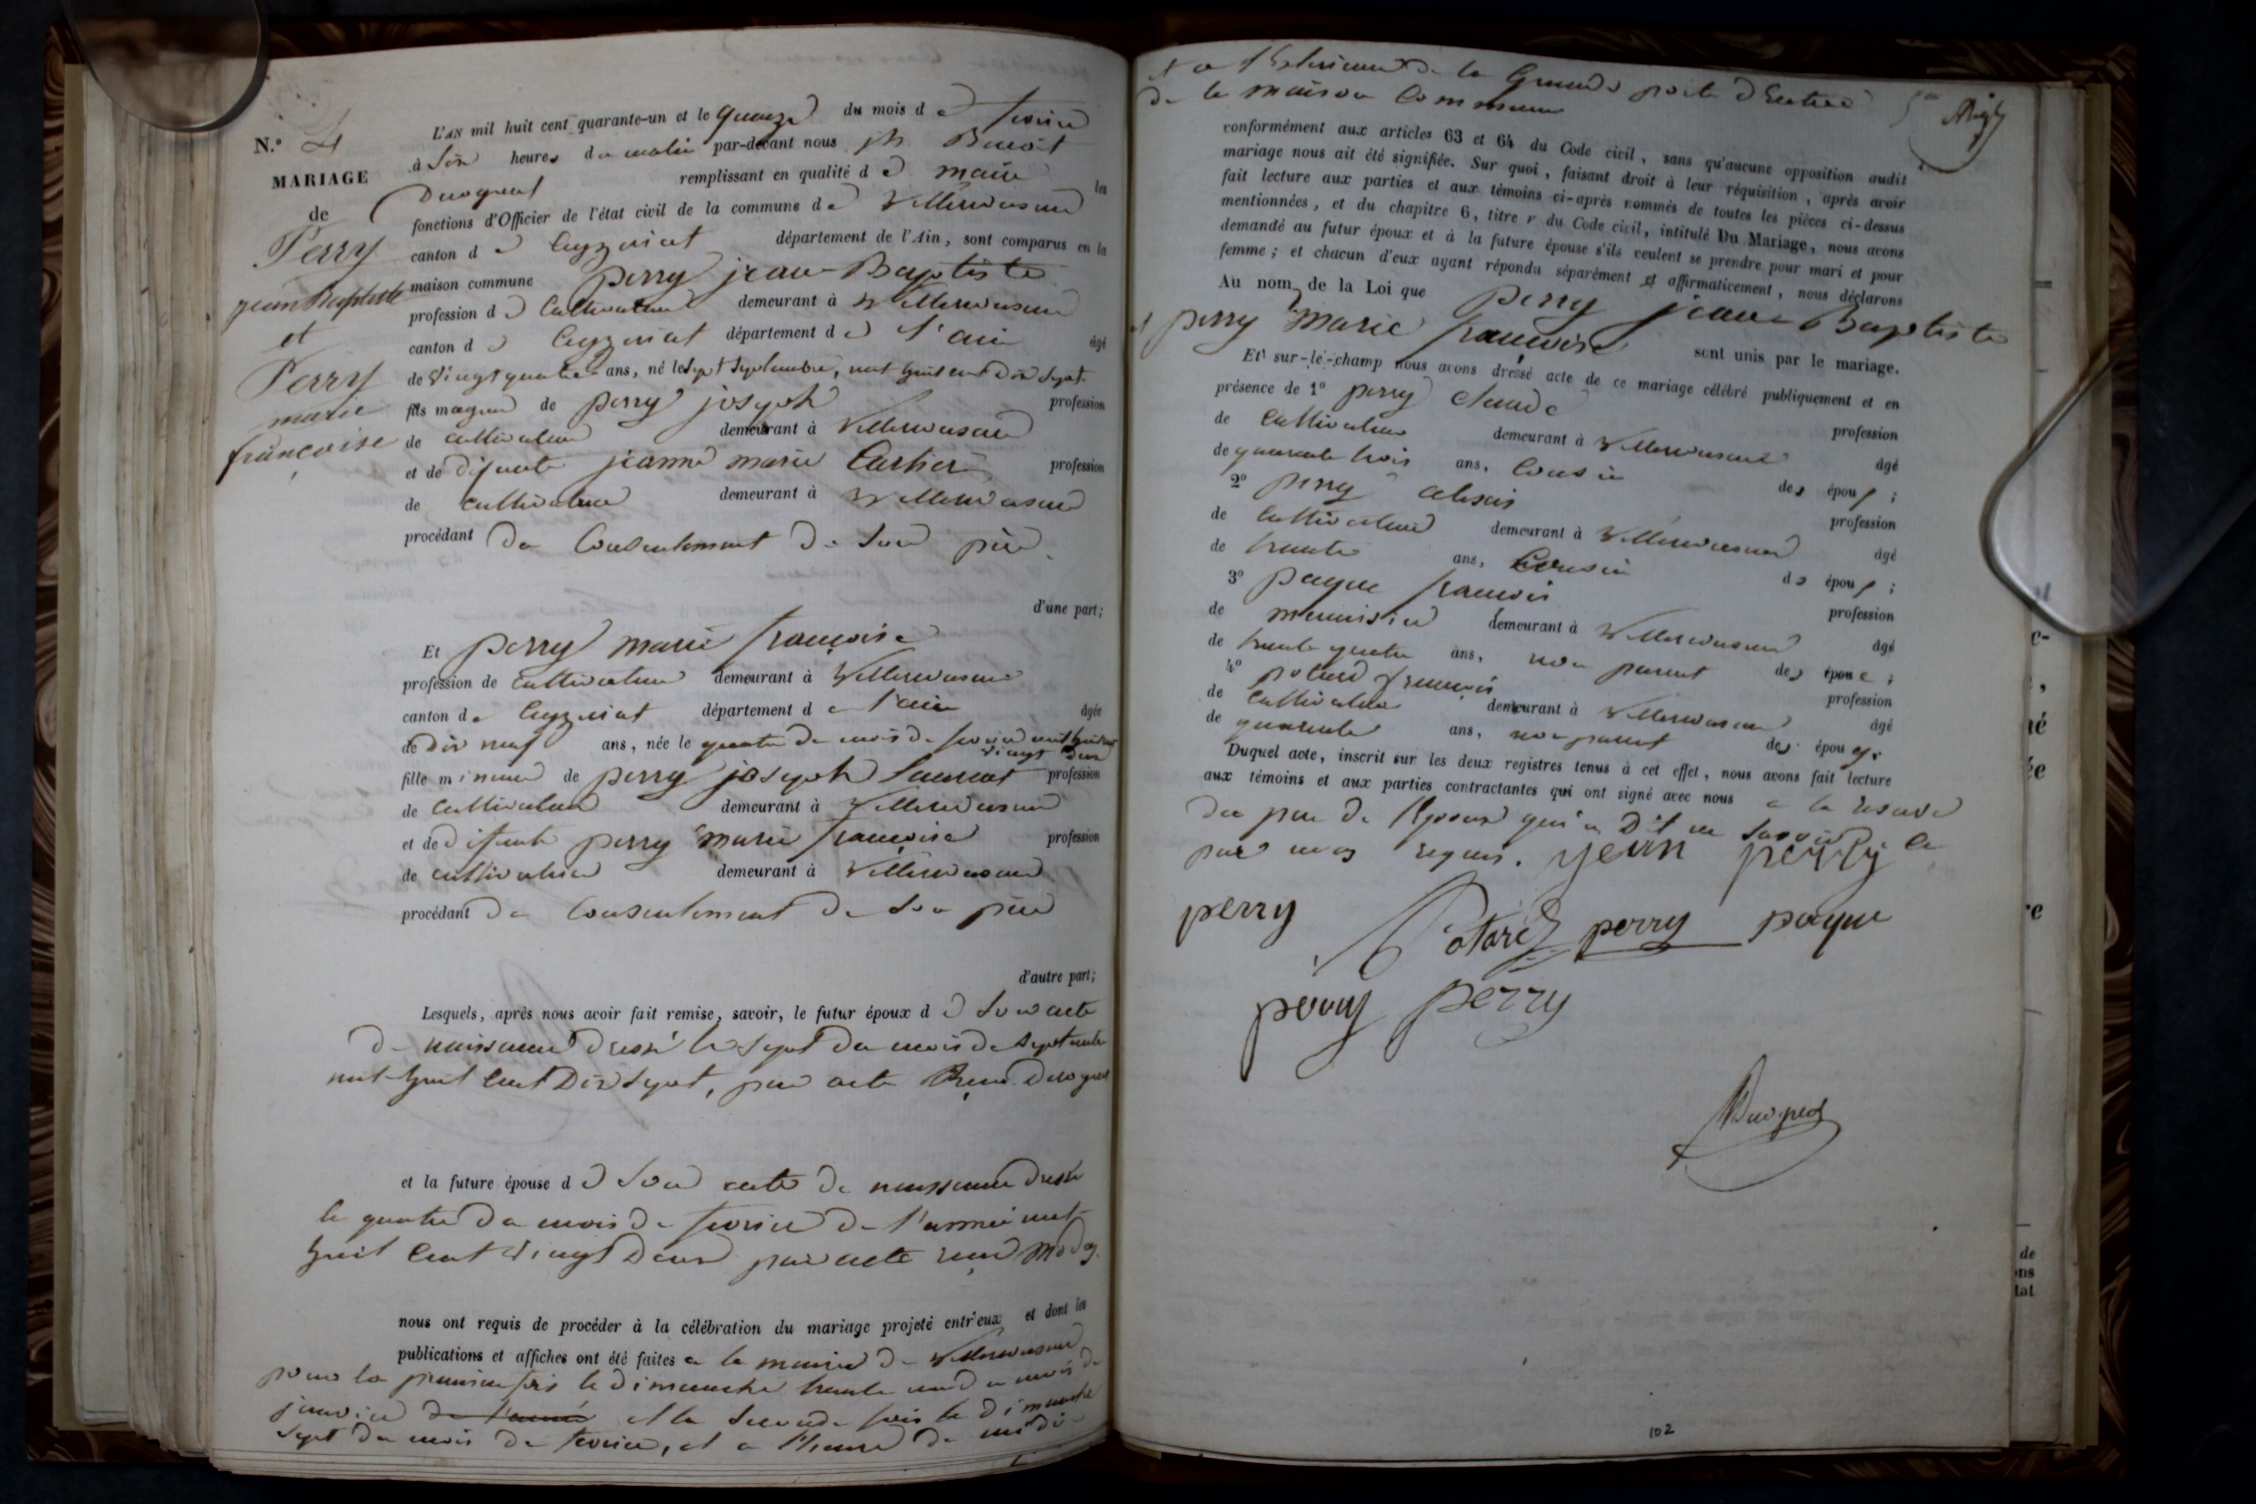 N.º 4
MARIAGE
de
Perry
jean Baptiste
et
Perry
marie
françoise
L'AN mil huit cent quarante-un et le quinze du mois de fevrier
à dix heures du matin par-devant nous ph. Benoit
Ducognent remplissant en qualité de maire les
fonctions d'Officier de l'état civil de la commune de Villereversure
canton de Ceyzeriat département de l'Ain, sont comparus en la
maison commune perry jean-Baptiste
profession de Cultivateur demeurant à Villereversure
canton de Ceyzeriat département de l'ain âgé
de vingt quatre ans, né le sept septembre, mil huit cent dix sept.
fils majeur de perry joseph profession
de cultivateur demeurant à Villereversure
et de difunte jeanne marie Cartier profession
de cultivateur demeurant à Villereversure
procédant du Consentement de son père.
d'une part;
Et perry marie françoise
profession de cultivateur demeurant à Villereversure
canton de Ceyzeriat département de l'ain âgée
de dix neuf ans, née le quatre du mois de fevrier mil huit cent
vingt deux
fille mineure de perry joseph Laurent profession
de cultivateur demeurant à Villereversure
et de difunte perry marie françoise profession
de cultivateur demeurant à Villereversure
procédant du Consentement de son père
d'autre part;
Lesquels, après nous avoir fait remise, savoir, le futur époux de son acte
de naissance dressé le sept du mois de septembre
mil-huit cent Dix sept, par acte Reçu
et la future épouse de son acte de naissance dressé
le quatre du mois de fevrier de l'année mil-
huit cent vingt Deux par acte reçu
nous ont requis de procéder à la célébration du mariage projeté entr'eux et dont les
publications et affiches ont été faites a la mairie de Villereversure
pour la première fois le dimanche trente un du mois de
janvier de l'année et la seconde fois le dimanche
sept du mois de fevrier, et a l'heure de midi
et a l'Exterieur de la Grande porte d'Entrée
de la maison Commune
conformément aux articles 63 et 64 du Code civil, sans qu'aucune opposition audit
mariage nous ait été signifiée. Sur quoi, faisant droit à leur réquisition, après avoir
fait lecture aux parties et aux témoins ci-après nommés de toutes les pièces ci-dessus
mentionnées, et du chapitre 6, titre V du Code civil, intitulé Du Mariage, nous avons
demandé au futur époux et à la future épouse s'ils veulent se prendre pour mari et pour
femme; et chacun d'eux ayant répondu séparément et affirmativement, nous déclarons
Au nom de la Loi que perry jean-Baptiste
et perry marie françoise sont unis par le mariage.
Et sur-le-champ nous avons dressé acte de ce mariage célébré publiquement et en
présence de 1º perry claude profession
de Cultivateur demeurant à Villereversure âgé
de quarante trois ans, Cousin des époux;
2º perry alexis profession
de Cultivateur demeurant à Villereversure âgé
de trente ans, Cousin des époux;
3º paque françois profession
de menuisier demeurant à Villereversure âgé
de trente quatre ans, non parent des époux;
4º potard françois profession
de Cultivateur demeurant à Villereversure âgé
de quarante ans, non parent des époux.
Duquel acte, inscrit sur les deux registres tenus à cet effet, nous avons fait lecture
aux témoins et aux parties contractantes qui ont signé avec nous a la reserve
du père de l'Epoux qui a Dit ne savoir le
par nous requis. jean perry
perry Potard perry paque
perry perry
102